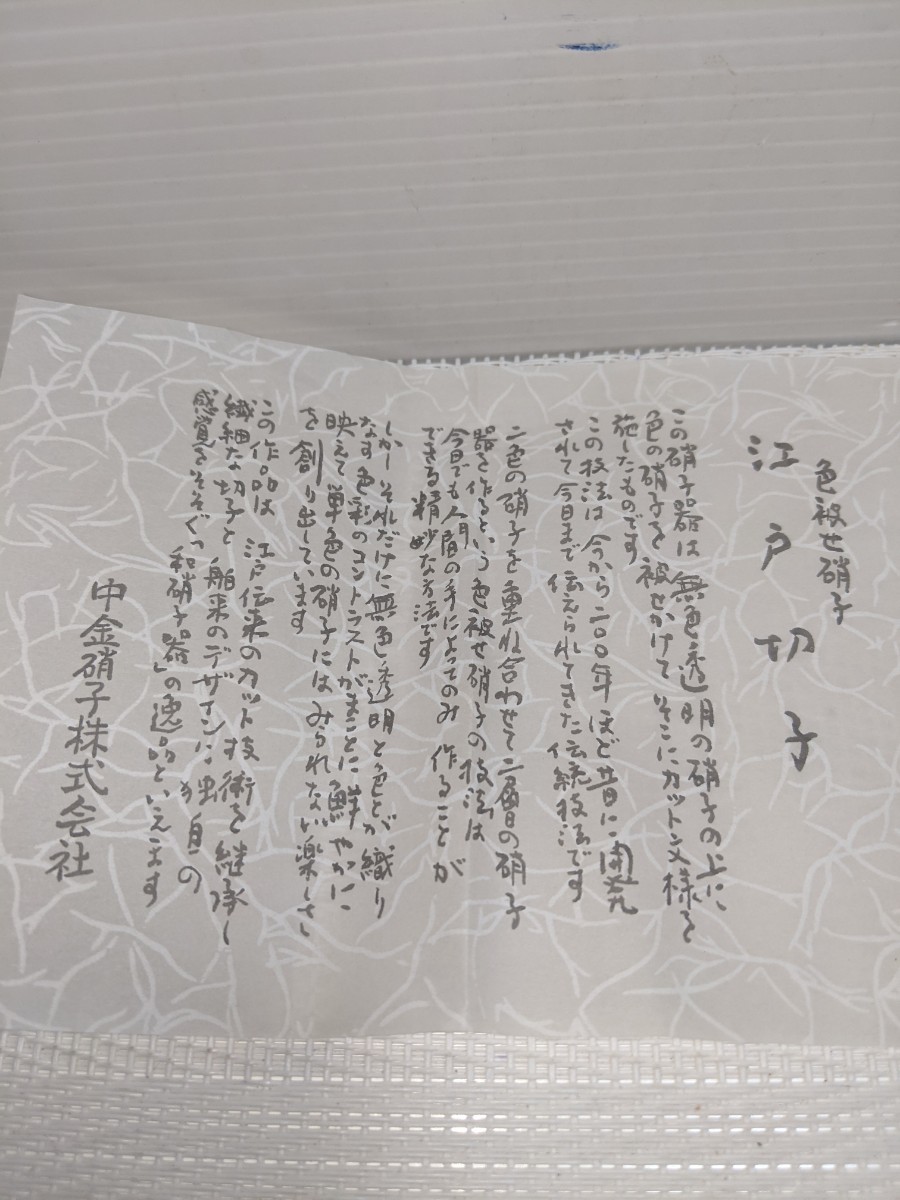 色被せ硝子
江戸切子
この硝子器は 無色・透明の硝子の上に、
色の硝子を 被せかけて そこにカットン文様を
施したものです
この技法は 今から二〇〇年 ほど昔に 開発
されて 今日まで 伝えられてきた 伝統技法です
二色の硝子を 重ね合わせて 二層の硝子
器を作るという 色被せ硝子の技法は
今日でも 人間の手によってのみ 作ることが
できる 精妙な方法です
しかし それだけに 無色・透明と色とが 織り
なす色彩のコントラストが まことに 鮮やかに
映えて 単色の硝子には みられない 楽しさ
を 創り出しています
この作品は 江戸伝来のカット技術を 継承し
繊細な切子と 舶来のデザインに 独自の
感覚をそそぐ 和硝子器」の逸品といえます
中金硝子株式会社